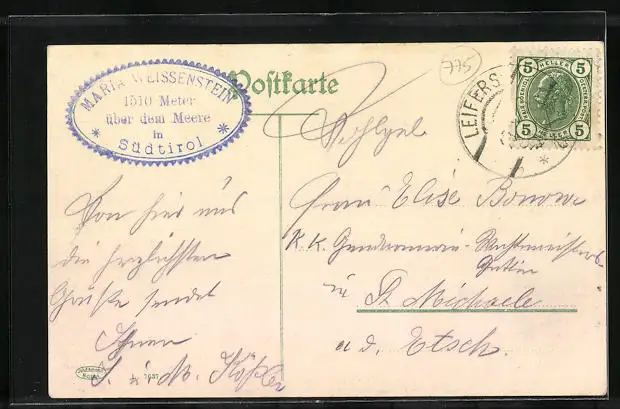 MARIA WEISSENSTEIN
1510 Meter
über dem Meere
* in *
Südtirol
Postkarte
775
LEIFERS
5 HELLER 5
5 5
Wohlgeb.
Frau Elise
K. K. Gendarmerie-Wachtmeisters
Gattin
in St. Michaele
a. d. Etsch.
Von hier aus
die herzlichsten
Grüße sendet
Ihnen